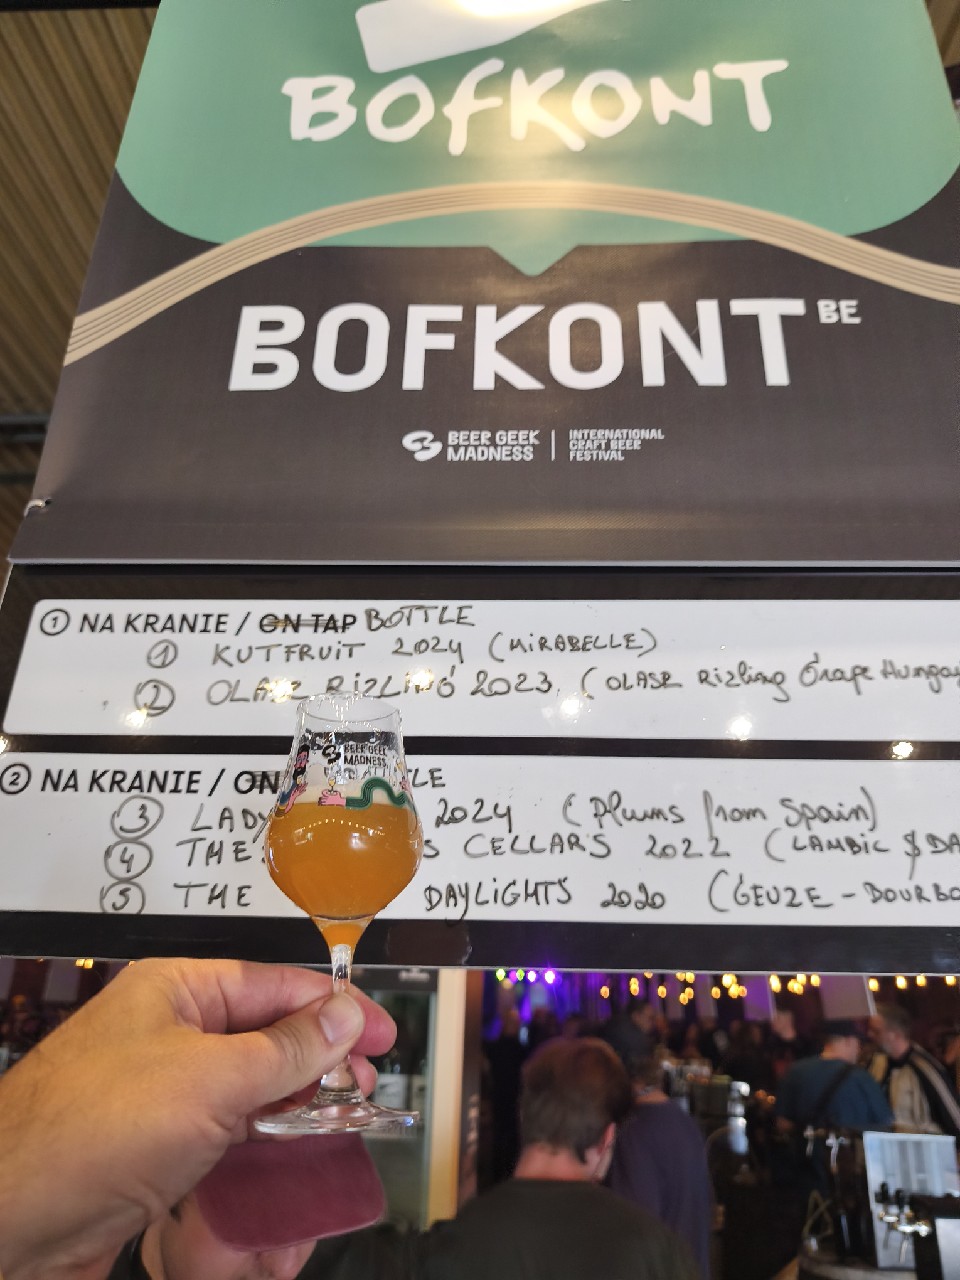 BOFKONT
BOFKONT BE
BEER GEEK MADNESS | INTERNATIONAL CRAFT BEER FESTIVAL
1 NA KRANIE / ON TAP BOTTLE
1 KUTFRUIT 2024 (MIRABELLE)
2 OLASZ RIZLINGÓ 2023 (OLASZ Rizling Grape Hungary
2 NA KRANIE / ON TLE
3 LADY 2024 (Plums from Spain)
4 THE S CELLAR'S 2022 (LAMBIC & DA
5 THE DAYLIGHTS 2020 (GEUZE - BOURBO
BEER GEEK
MADNESS